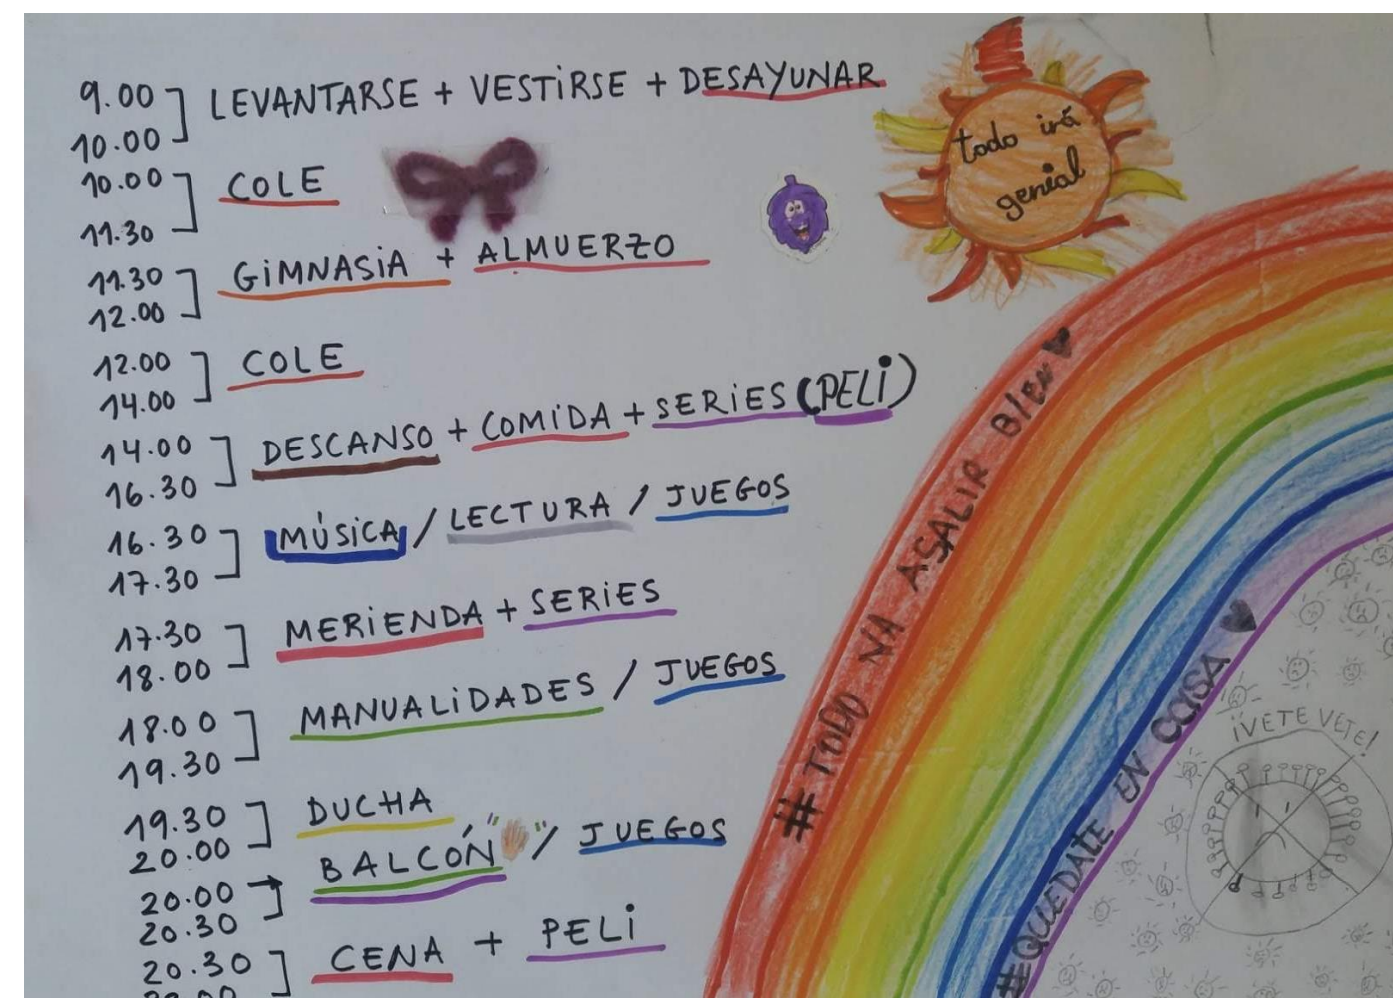 9.00 LEVANTARSE + VESTIRSE + DESAYUNAR
10.00
10.00 COLE
11.30
11.30 GIMNASIA + ALMUERZO
12.00
12.00 COLE
14.00
14.00 DESCANSO + COMIDA + SERIES (PELI)
16.30
16.30 MÚSICA / LECTURA / JUEGOS
17.30
17.30 MERIENDA + SERIES
18.00
18.00 MANUALIDADES / JUEGOS
19.30
19.30 DUCHA
20.00
20.00 BALCÓN "" / JUEGOS
20.30
20.30 CENA + PELI
todo irá
genial
# TODO NA ASALIR BIEN
#QUEDATE EN CASA
¡VETE VETE!